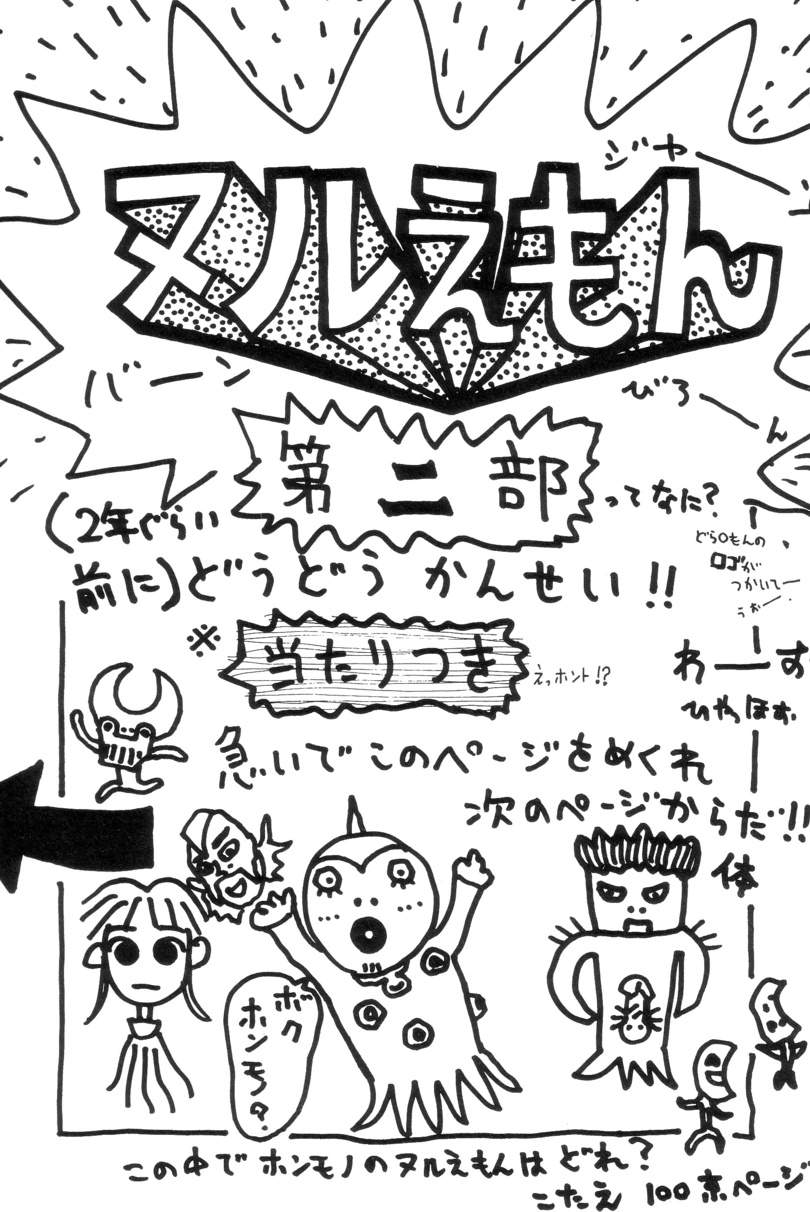 ジャーン
ヌルえもん
バーン
びろーん
第二部
ってなに?
(2年ぐらい
前に)どうどうかんせい!!
どら〇もんの
ロゴが
つかいてー
うおー
※
当たりつき
えっホント!?
わーす
ひゃっほす
急いでこのページをめくれ
次のページからだ!!
体
ボク
ホンモノ?
この中でホンモノのヌルえもんはどれ?
こたえ 100京ページ